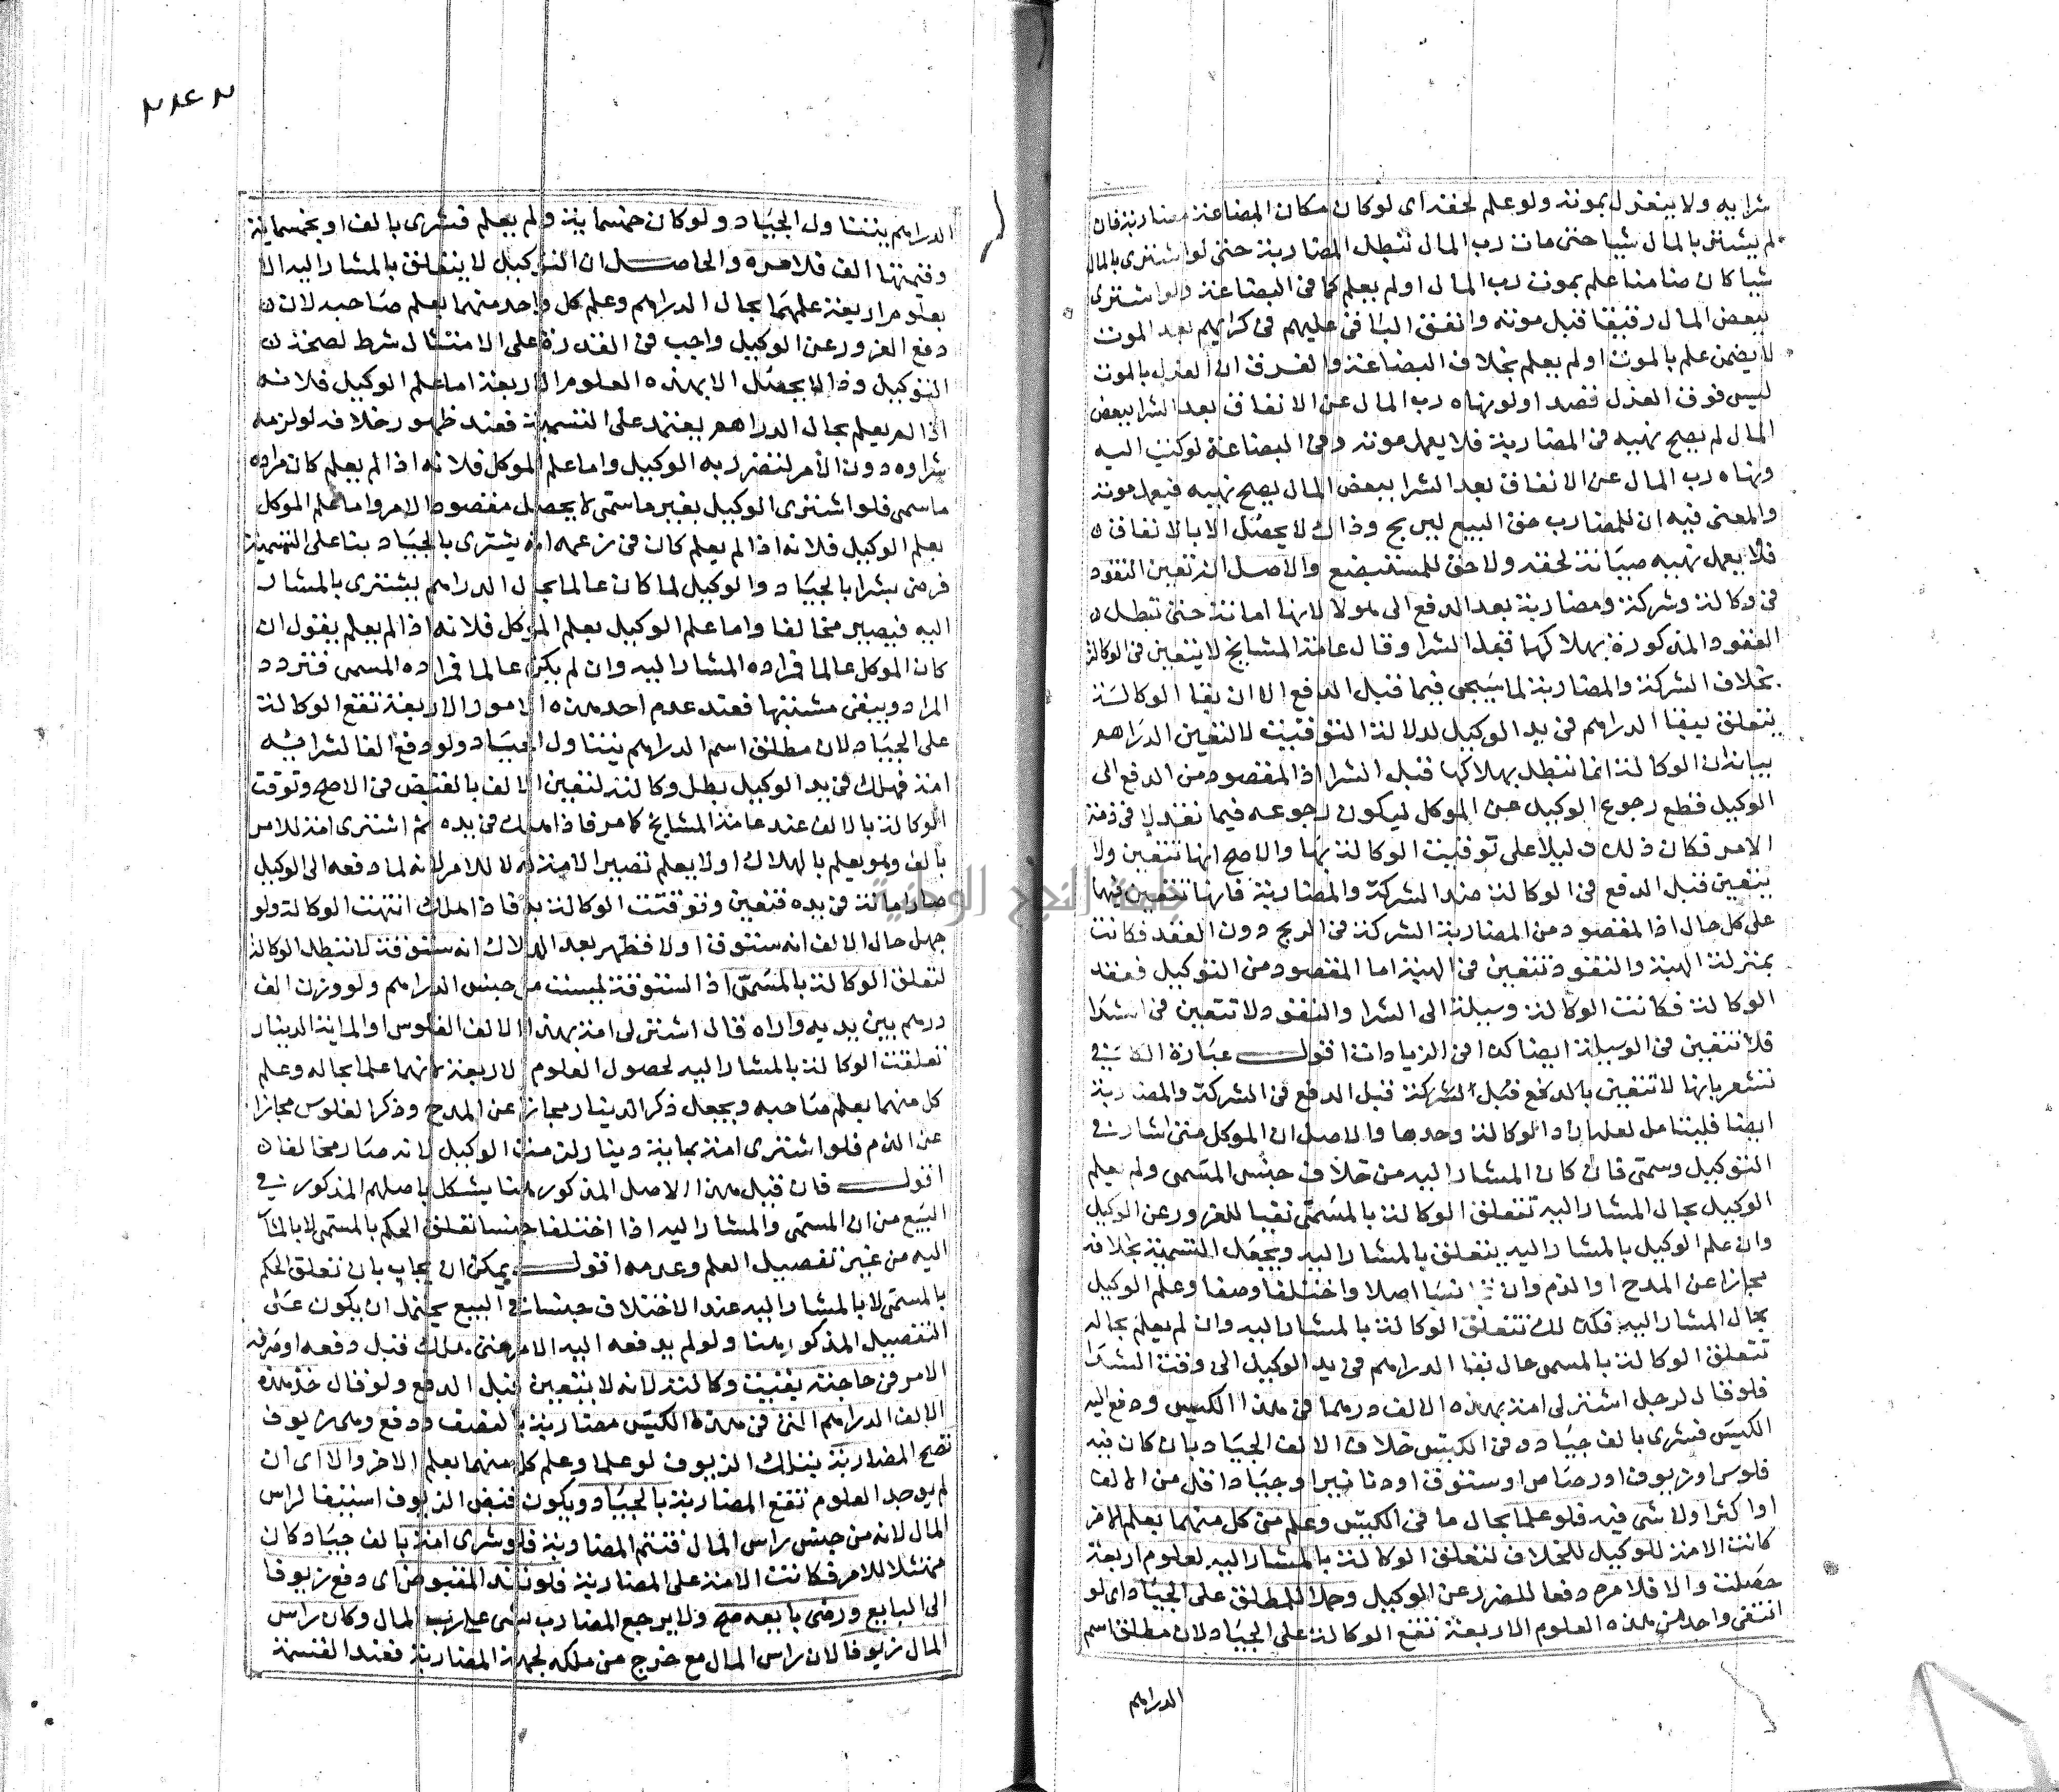 شرايه ولا ينعزل بموته ولو علم لحقه اى لو كان مكان البضاعة مضاربة فان
لم يشتر بالمال شيا حتى مات رب المال تبطل المضاربة حتى لو اشترى بالمال
شيا كان ضامنا علم بموت رب المال او لم يعلم كما فى البضاعة ولو اشترى
ببعض المال رقيقا قبل موته وانفق الباقى عليهم فى كرايهم بعد الموت
لا يضمن علم بالموت او لم يعلم بخلاف البضاعة والفرق ان العزل بالموت
ليس فوق العزل قصدا ولو نهاه رب المال عن الانفاق بعد الشرا ببعض
المال لم يصح نهيه فى المضاربة فلا يعمل موته وفى البضاعة لو كتب اليه
ونهاه رب المال عن الانفاق بعد الشرا ببعض المال يصح نهيه فيعمل موته
والمعنى فيه ان للمضارب حق البيع ليربح وذاك لا يحصل الا بالانفاق
فلا يعمل نهيه صيانة لحقه ولا حق للمستبضع والاصل ان تعين النقود
فى وكالة وشركة ومضاربة بعد الدفع الى هولا لانها امانة حتى تبطل
العقود المذكورة بهلاكها قبل الشرا وقال عامة المشايخ لا يتعين فى الوكالة
بخلاف الشركة والمضاربة لما سيجى فيما قبل الدفع الا ان بقا الوكالة
يتعلق ببقا الدراهم فى يد الوكيل لدلالة التوقيت لا لتعين الدراهم
بيانه ان الوكالة انما تبطل بهلاكها قبل الشرا اذ المقصود من الدفع الى
الوكيل قطع رجوع الوكيل عن الموكل ليكون رجوعه فيما نقد لا فى ذمة
الامر فكان ذلك دليلا على توقيت الوكالة بها والاصح انها تتعين ولا
يتعين قبل الدفع فى الوكالة ضد الشركة والمضاربة فانها تتعين فيها
على كل حال اذ المقصود من المضاربة الشركة فى الربح دون العقد فكانت
بمنزلة الهبة والنقود تتعين فى الهبة اما المقصود من التوكيل فعقد
الوكالة فكانت الوكالة وسيلة الى الشرا والنقود لا تتعين فى الشرا
فلا تتعين فى الوسيلة ايضا كذا فى الزيادات اقول عبارة الكافى
تشعر بانها لا تتعين بالدفع قبل الشركة قبل الدفع فى الشركة والمضاربة
ايضا فليتامل لعله اراد الوكالة وحدها والاصل ان الموكل متى اشار فى
التوكيل وسمى فان كان المشار اليه من خلاف جنس المسمى ولم يعلم
الوكيل بحال المشار اليه تتعلق الوكالة بالمسمى نفيا للغرور عن الوكيل
وان علم الوكيل بالمشار اليه يتعلق بالمشار اليه ويجعل التسمية بخلافه
مجازا عن المدح او الذم وان تجانسا اصلا واختلفا وصفا وعلم الوكيل
بحال المشار اليه فكذلك تتعلق الوكالة بالمشار اليه وان لم يعلم بحاله
تتعلق الوكالة بالمسمى حال بقا الدراهم فى يد الوكيل الى وقت الشرا
فلو قال لرجل اشتر لى امة بهذه الالف درهما فى هذا الكيس ودفع اليه
الكيس فشرى بالف جياد وفى الكيس خلاف الالف الجياد بان كان فيه
فلوس او زيوف او رصاص او ستوق او دنانير او جياد اقل من الالف
او اكثر او لا شى فيه فلو علما بحال ما فى الكيس وعلم من كل منهما بعلم الاخر
كانت الامة للوكيل للخلاف لتعلق الوكالة بالمشار اليه لعلوم اربعة
حصلت والا فلامره دفعا للضرر عن الوكيل وحملا للمطلق على الجياد اى لو
انتفى واحد من هذه العلوم الاربعة تقع الوكالة على الجياد لان مطلق اسم
الدراهم
الدراهم يتناول الجياد ولو كان خمسماية ولم يعلم فشرى بالف او بخمسماية
وقيمتها الف فلامره والحاصل ان التوكيل لا يتعلق بالمشار اليه الا
بعلوم اربعة علمهما بحال الدراهم وعلم كل واحد منهما بعلم صاحبه لان
دفع الغرور عن الوكيل واجب فى القدرة على الامتثال شرط لصحة
التوكيل وذا لا يحصل الا بهذه العلوم الاربعة اما علم الوكيل فلانه
اذا لم يعلم بحال الدراهم يعتمد على التسمية فعند ظهور خلافه لو لزمه
شراوه دون الامر لتضرر به الوكيل واما علم الموكل فلانه اذا لم يعلم كان مراده
ما سمى فلو اشترى الوكيل بغير ما سمى لا يحصل مقصود الامر واما علم الموكل
بعلم الوكيل فلانه اذا لم يعلم كان فى زعمه انه يشترى بالجياد بنا على التسمية
فرضى بشرا بالجياد والوكيل لما كان عالما بحال الدراهم يشترى بالمشار
اليه فيصير مخالفا واما علم الوكيل بعلم الموكل فلانه اذا لم يعلم يقول ان
كان الموكل عالما فمراده المشار اليه وان لم يكن عالما فمراده المسمى فتردد
المراد ويبقى مشتبها فعند عدم احد هذه الامور الاربعة تقع الوكالة
على الجياد لان مطلق اسم الدراهم يتناول الجياد ولو دفع الفا لشرايه
امة فهلك فى يد الوكيل بطل وكالته لتعين الالف بالقبض فى الاصح وتوقت
الوكالة بالالف عند عامة المشايخ كما مر فاذا هلك فى يده ثم اشترى امة للامر
بالف ولو يعلم بالهلاك او لا يعلم تصير الامة له لا للامر لانه لما دفعه الى الوكيل
صار امانة فى يده فتعين وتوقتت الوكالة به فاذا هلك انتهت الوكالة ولو
جهل حال الالف انه ستوقة او لا فظهر بعد الهلاك انه ستوقة لا تبطل الوكالة
لتعلق الوكالة بالمسمى اذ الستوقة ليست من جنس الدراهم ولو وزن الف
درهم بين يديه واراه قال اشتر لى امة بهذا الالف الفلوس او الماية الدينار
تعلقت الوكالة بالمشار اليه لحصول العلوم الاربعة لانهما علما بحاله وعلم
كل منهما بعلم صاحبه ويجعل ذكر الدينار مجازا عن المدح وذكر الفلوس مجازا
عن الذم فلو اشترى امة بماية دينار لزمت الوكيل لانه صار مخالفا
اقول فان قيل هذا الاصل المذكور هنا يشكل باصلهم المذكور فى
البيع من ان المسمى والمشار اليه اذا اختلفا جنسا تعلق الحكم بالمسمى لا بالمشار
اليه من غير تفصيل العلم وعدمه اقول يمكن ان يجاب بان تعلق الحكم
بالمسمى لا بالمشار اليه عند الاختلاف جنسا فى البيع يحتمل ان يكون على
التفصيل المذكور هنا ولو لم يدفعه اليه الامر حتى هلك قبل دفعه او صرفه
الامر فى حاجته بقيت وكالته لانه لا يتعين قبل الدفع ولو قال خذ هذه
الالف الدراهم التى فى هذا الكيس مضاربة بالنصف ودفع وهى زيوف
تصح المضاربة بتلك الزيوف لو علما وعلم كل منهما بعلم الاخر والا اى ان
لم يوجد العلوم تقع المضاربة بالجياد ويكون قبض الزيوف استيفا لراس
المال لانه من جنس راس المال فتتم المضاربة فلو شرى امة بالف جياد كان
ممتثلا للامر فكانت الامة على المضاربة فلو نقد المقبوض اى دفع زيوفا
الى البايع ورضى بايعه صح ولا يرجع المضارب بشى على رب المال وكان راس
المال زيوفا لان راس المال مع خرج من ملكه لجهة المضاربة فعند القسمة